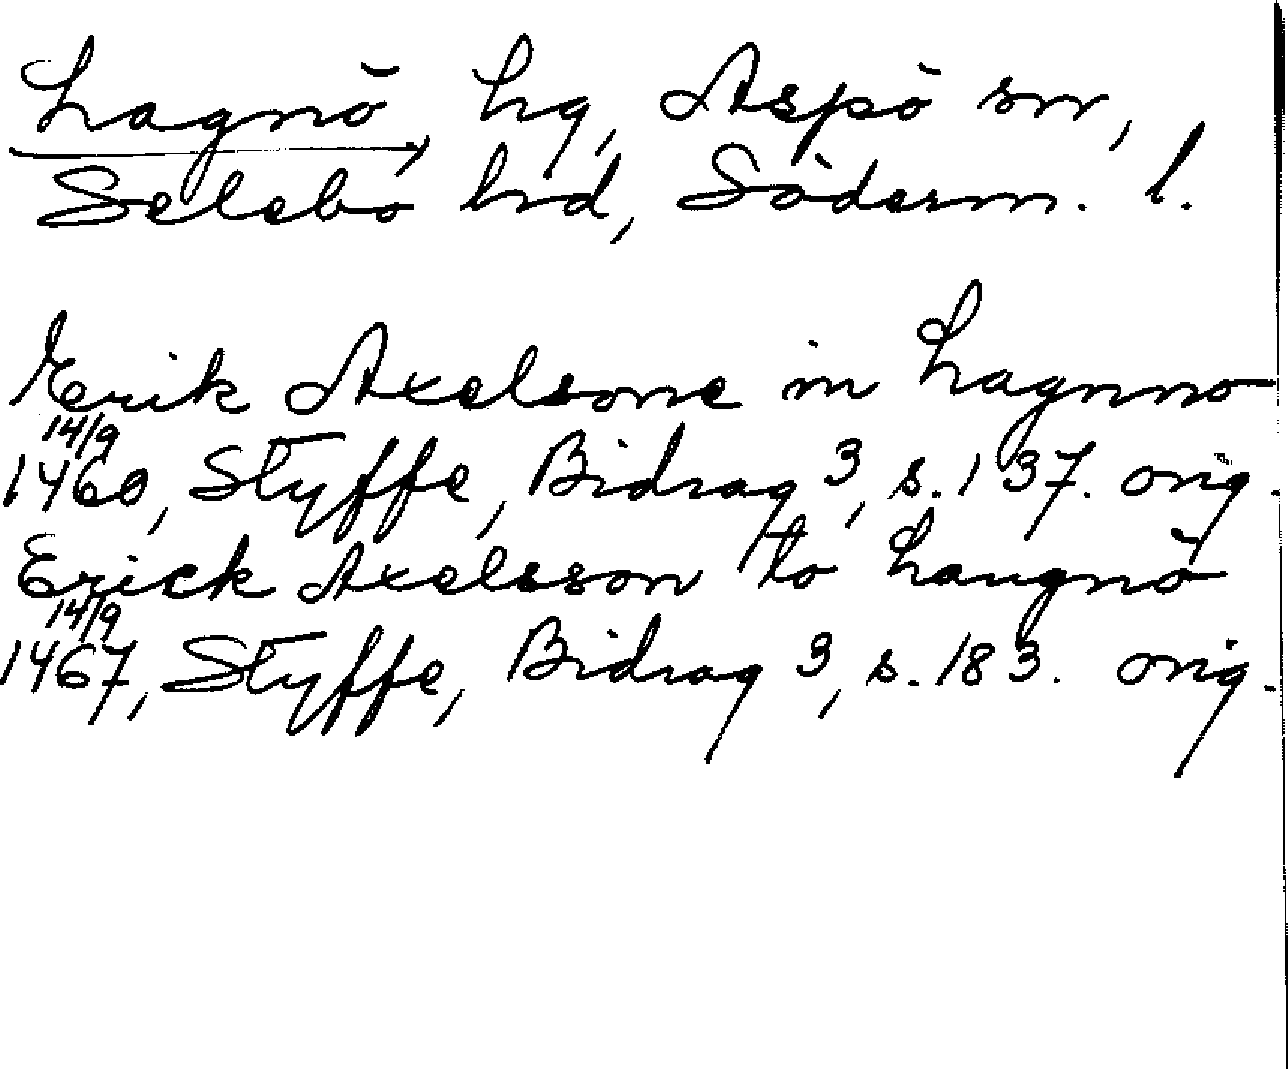 Lagnö, hg, Aspö sn,
Selebo hrd, Söderm. l.
Erik Axelsone in Lagnno
14/9
1460, Styffe, Bidrag 3, s. 137. orig.
Erick Axelsson to Laugnö
14/9
1467, Styffe, Bidrag 3, s. 183. orig.